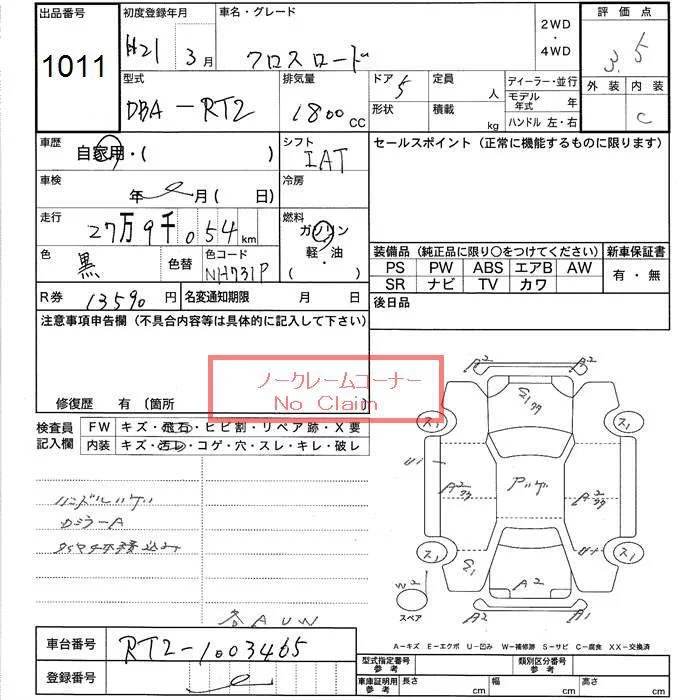 出品番号 初度登録年月 車名・グレード 2WD・4WD 評価点
1011 H21 3月 クロスロード 3.5
外装 内装 C
型式 排気量 ドア 5 定員 人 ディーラー・並行
DBA-RT2 1800cc 形状 積載 kg モデル年式 年
ハンドル 左・右
車歴 自家用・( ) シフト IAT セールスポイント(正常に機能するものに限ります)
車検 年 月( 日) 冷房
走行 27万9千054km 燃料 ガソリン 軽・油 ( )
色 黒 色替 色コード NH731P
装備品(純正品に限り○をつけてください) 新車保証書
PS PW ABS エアB AW 有・無
SR ナビ TV カワ
R券 13590円 名変通知期限 月 日 後日品
注意事項申告欄(不具合内容等は具体的に記入して下さい)
ノークレームコーナー
No Claim
修復歴 有〔箇所
検査員記入欄 FW キズ・飛石・ヒビ割・リペア跡・X要
内装 キズ・汚レ・コゲ・穴・スレ・キレ・破レ
A2 A2
ス1 ス1
A2 A2
ス1 ス1
W2
スペア
A2
A2 A1
各AUW
A-キズ E-エクボ U-凹み W-補修跡 S-サビ C-腐食 XX-交換済
車台番号 RT2-1003465
登録番号
型式指定番号参考 類別区分番号参考
車庫証明用参考 長さ cm 幅 cm 高さ cm